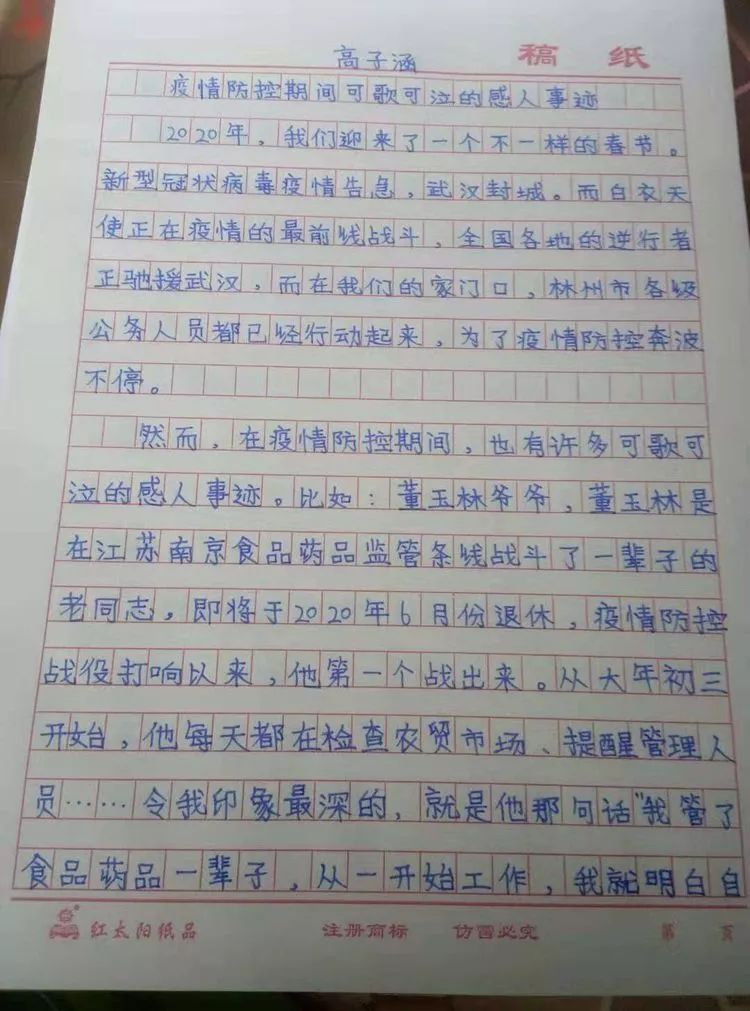 高子涵
稿 纸
疫情防控期间可歌可泣的感人事迹
2020年，我们迎来了一个不一样的春节。
新型冠状病毒疫情告急，武汉封城。而白衣天
使正在疫情的最前线战斗，全国各地的逆行者
正驰援武汉，而在我们的家门口，林州市各级
公务人员都已经行动起来，为了疫情防控奔波
不停。
然而，在疫情防控期间，也有许多可歌可
泣的感人事迹。比如：董玉林爷爷，董玉林是
在江苏南京食品药品监管条线战斗了一辈子的
老同志，即将于2020年6月份退休，疫情防控
战役打响以来，他第一个战出来。从大年初三
开始，他每天都在检查农贸市场、提醒管理人
员……令我印象最深的，就是他那句话"我管了
食品药品一辈子，从一开始工作，我就明白自
红太阳纸品 注册商标 仿冒必究 第 页